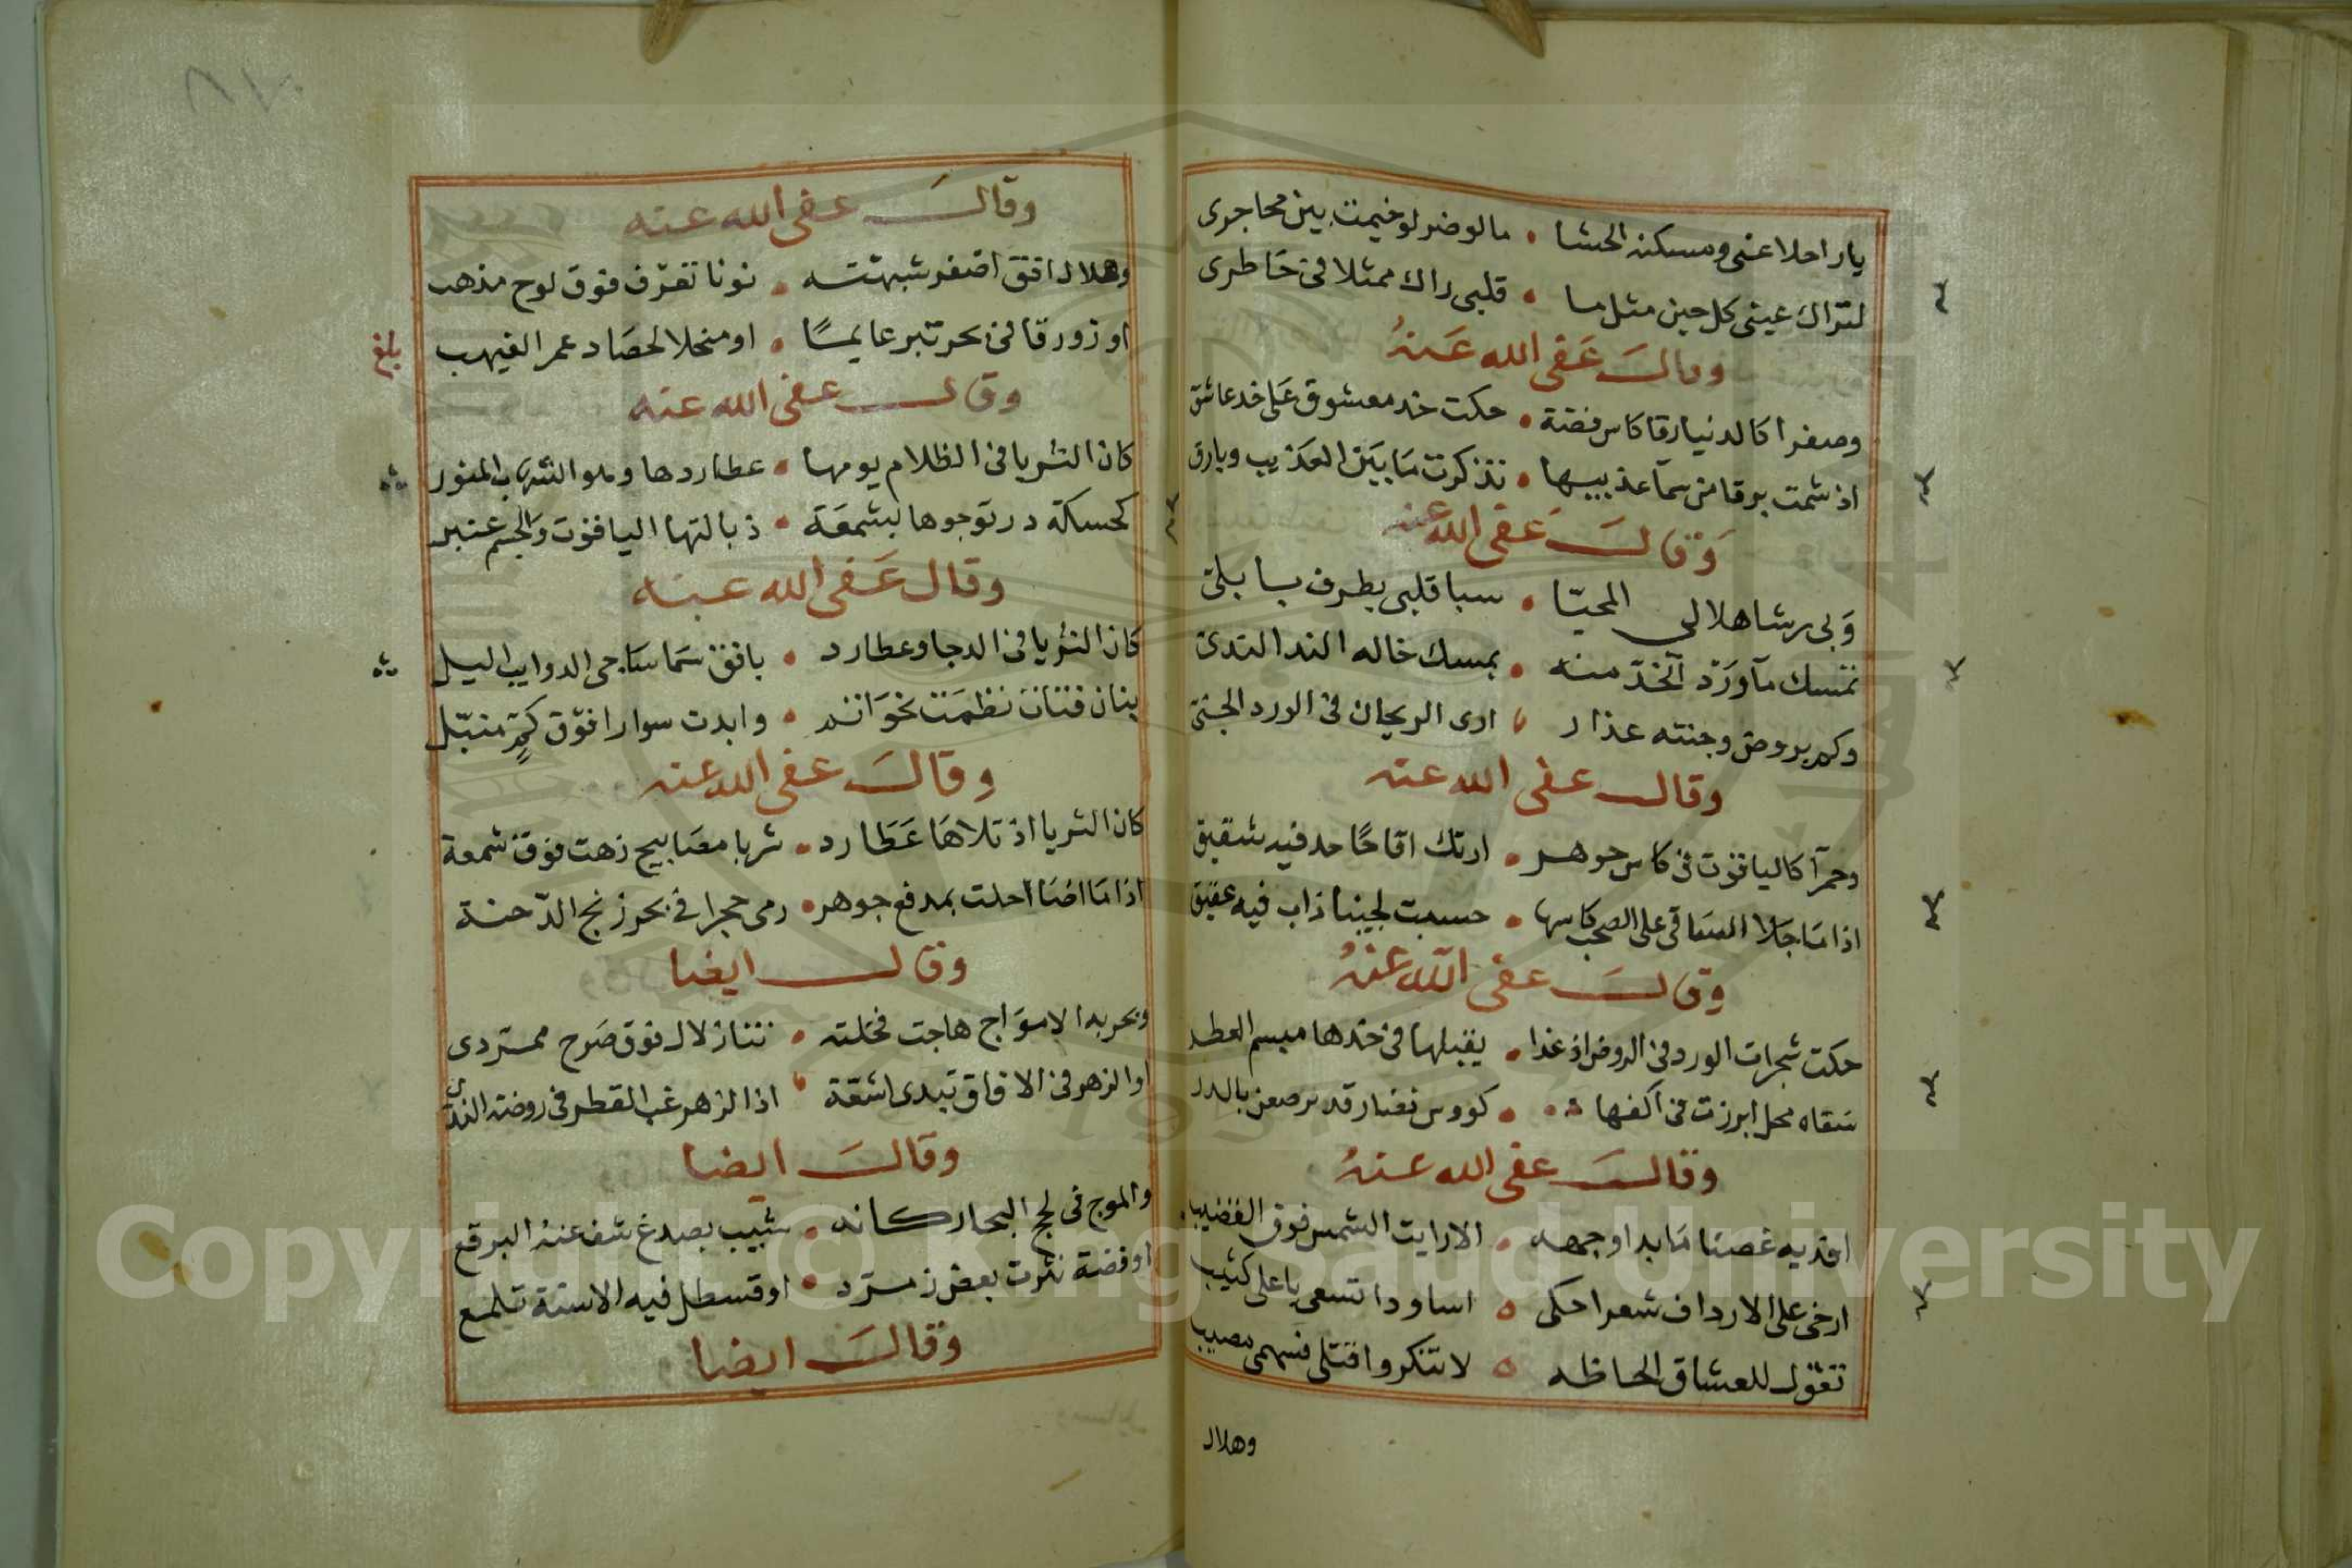 يا راحلا عنى ومسكنه الحشا • ما لو ضر لو خيمت بين محاجرى
لتراك عينى كل حين مثل ما • قلبى راك ممثلا فى خاطرى
وقال عفى الله عنه
وصفرا كالدنيار قا كاس فضة • حكت خد معشوق على خد عاشق
اذ شمت برقا من سما عذبيها • تذكرت ما بين العذيب وبارق
وقال عفى الله عنه
وبى رشا هلالى المحيّا • سبا قلبى بطرف بابلى
تمسك ما ورد الخد منه • بمسك خاله الند الندى
وكم بروض وجنته عذار • ارى الريحان فى الورد الجنى
وقال عفى الله عنه
وحمرا كالياقوت فى كاس جوهر • ارتك اقاحا حد فيه شقيق
اذا ما جلا الساقى على الصحب كاسها • حسبت لجينا ذاب فيه عقيق
وقال عفى الله عنه
حكت شجرات الورد فى الروض اذ غدا • يقبلها فى خدها مبسم القطر
سقاه محل ابرزت فى اكفها • كووس نضار قد رصعن بالدر
وقال عفى الله عنه
افديه غصنا ما بدا وجهه • الا رايت الشمس فوق القضيب
ارخى على الارداف شعرا حكى • اساودا تسعى باعلى كثيب
تقول للعشاق الحاظه • لا تنكروا قتلى فسهمى مصيب
وهلال
وقال عفى الله عنه
وهلال افق اصفر شبهته • نونا تعرف فوق لوح مذهب
او زورقا فى بحر تبر عايمًا • او منجلا لحصاد عمر الغيهب
بلغ
وقال عفى الله عنه
كان الثريا فى الظلام يومها • عطاردها وملو الشهاب المنور
كحسكة در توجوها بشمعة • ذبالتها الياقوت والجسم عنبر
وقال عفى الله عنه
كان الثريا فى الدجا وعطارد • بافق سما ساجى الدوايب اليل
بنان فتاة نظمت خواتم • وابدت سوارا فوق كمٍّ منبّل
وقال عفى الله عنه
كان الثريا اذ تلاها عطارد • ثريا مصابيح زهت فوق شمعة
اذا ما اضا احلت بمدفع جوهر • رمى حجرا فى بحر زنج الدّجنة
وقال ايضا
وبحر به الامواج هاجت فخلته • تنازلال فوق صرح ممردى
او الزهر فى الافاق تبدى اشقة • اذا الزهر غب القطر فى روضه الندى
وقال ايضا
والموج فى لجج البحار كانه • شيب بصدغ شف عنه البرقع
او فضة نثرت بعض زمرد • او قسطل فيه الاسنة تلمع
وقال ايضا
Copyright © King Saud University